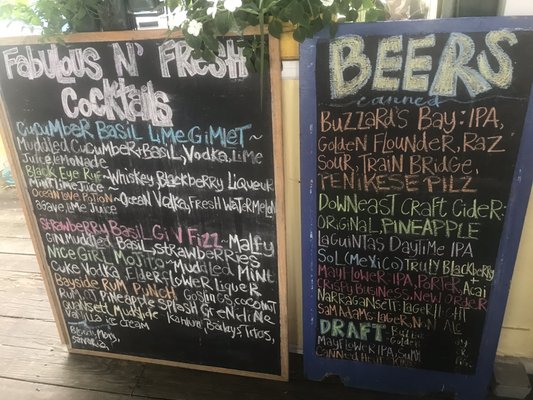 Fabulous N' Fresh
Cocktails
Cucumber Basil Lime Gimlet ~
Muddled Cucumber + Basil, Vodka, Lime
Juice, Lemonade
Black Eye
Mint Lime Juice ~ Whiskey, Blackberry Liqueur
Ocean Love Potion ~ Ocean Vodka, Fresh Watermelon
Agave, Lime Juice
Strawberry Basil Gin Fizz - Malfy
Gin, Muddled Basil, Strawberries
Nice Girl Mojito - Muddled Mint
Cuke Vodka, Elderflower Liquer
Bayside Rum Punch Goslings Coconut
Rum, Pineapple Splash Grenadine
Mudslide Kahlua, Baileys, Titos,
Vanilla ice cream
Beers
canned
Buzzard's Bay: IPA,
Golden Flounder, Raz
Sour, Train Bridge,
Penikese Pilz
Downeast Craft Cider-
Original, Pineapple
Lagunitas Daytime IPA
Sol (Mexico) Truly Blackberry
Mayflower IPA, Porter,
Crispy Business, New Order
Narragansett Lager + Light
Sam Adams: Lager, Non Ale
Draft:
Golden
Mayflower IPA,